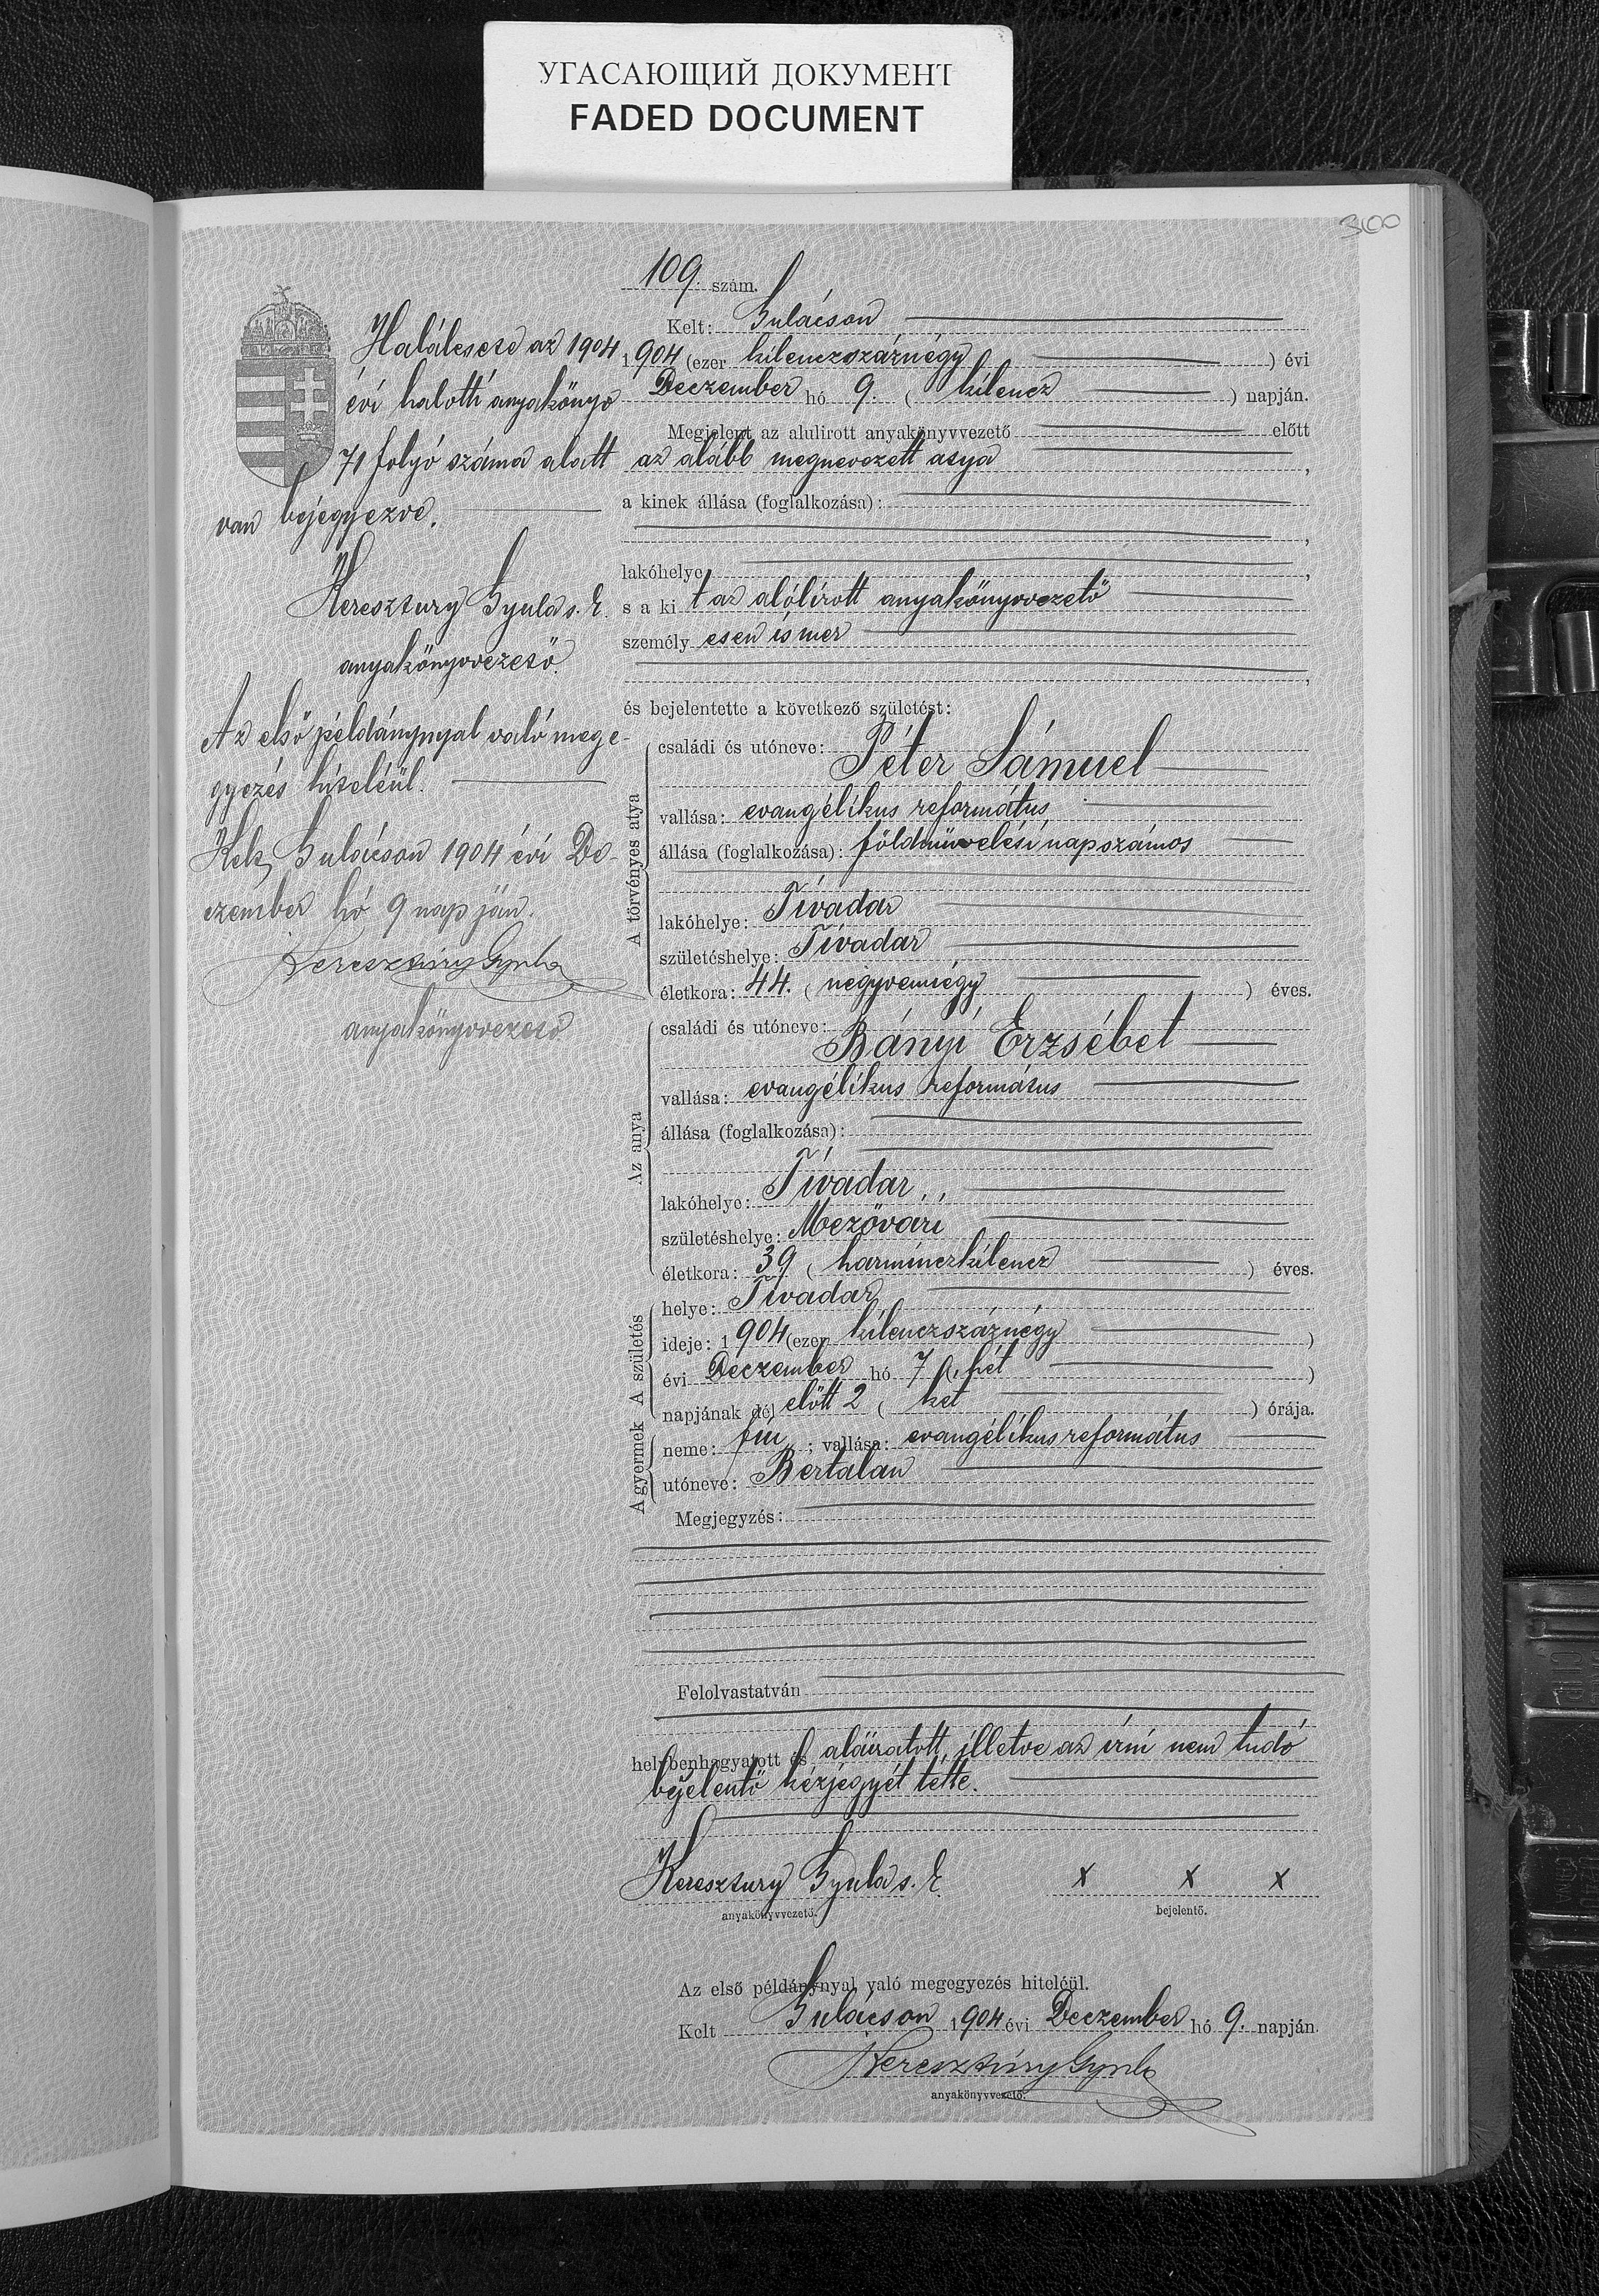 УГАСАЮЩИЙ ДОКУМЕНТ
FADED DOCUMENT
300
109. szám.
Kelt: Gulácson
1904 (ezer kilenczszáznégy) évi
Deczember hó 9. (kilencz) napján.
Megjelent az alulirott anyakönyvvezető előtt
az alább megnevezett atya,
a kinek állása (foglalkozása):
lakóhelye
s a kit az alólírott anyakönyvvezető
személyesen ismer
és bejelentette a következő születést:
A törvényes atya
családi és utóneve: Péter Sámuel
vallása: evangélikus református
állása (foglalkozása): földmüvelési napszámos
lakóhelye: Tivadar
születéshelye: Tivadar
életkora: 44. (negyvennégy) éves.
Az anya
családi és utóneve: Bányi Erzsébet
vallása: evangélikus református
állása (foglalkozása):
lakóhelye: Tivadar
születéshelye: Mezővári
életkora: 39 (harminczkilencz) éves.
A születés
helye: Tivadar
ideje: 1904 (ezer kilenczszáznégy)
évi Deczember hó 7 (hét)
napjának dél előtt 2 (két) órája.
A gyermek
neme: fiu; vallása: evangélikus református
utóneve: Bertalan
Megjegyzés:
Felolvastatván
helybenhagyatott és aláiratott, illetve az írni nem tudó
bejelentő kézjegyét tette.
Keresztury Gyula s. k. x x x
anyakönyvvezető. bejelentő.
Az első példánynyal való megegyezés hiteléül.
Kelt Gulácson 1904 évi Deczember hó 9. napján.
Keresztury Gyula
anyakönyvvezető.
Halálesete az 1904
évi halotti anyakönyv
71 folyó száma alatt
van bejegyezve.
Keresztury Gyula s. k.
anyakönyvvezető.
Az első példánynyal való mege-
gyezés hiteléül.
Kelt, Gulácson 1904 évi De-
czember hó 9 napján.
Keresztury Gyula
anyakönyvvezető